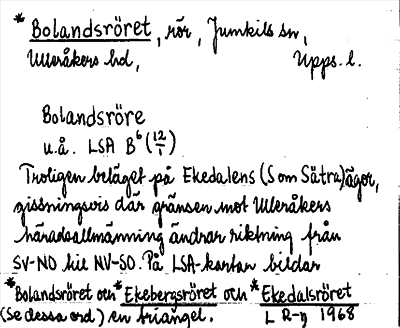 * Bolandsröret, rör, Jumkils sn,
Ulleråkers hd, Upps. l.
Bolandsröre
u.å. LSA B⁶ (12/1)
Troligen beläget på Ekedalens (S om Sätra) ägor,
gissningsvis där gränsen mot Ulleråkers
häradsallmänning ändrar riktning från
SV-NO till NV-SO. På LSA-kartan bildar
*Bolandsröret och *Ekebergsröret och *Ekedalsröret
(Se dessa ord) en triangel. L R-n 1968